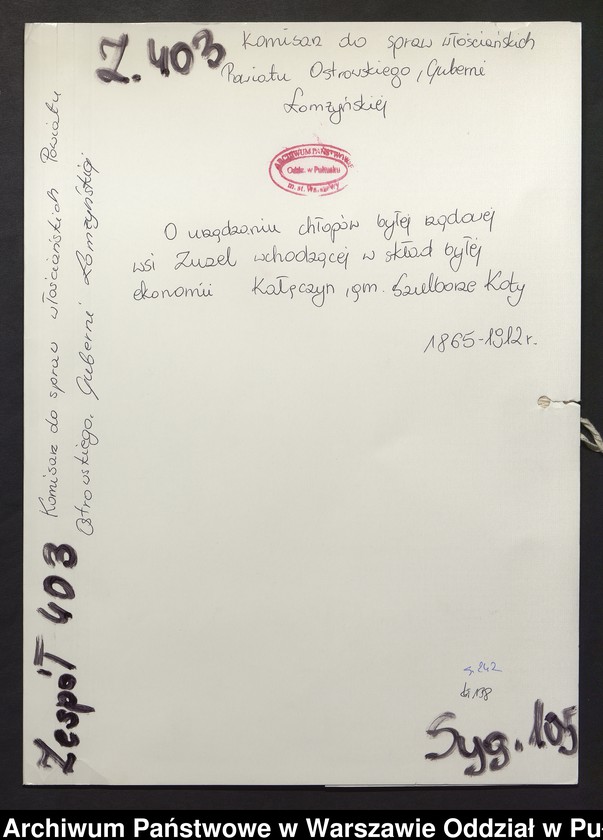 Z. 403 Komisarz do spraw włościańskich
Powiatu Ostrowskiego, Guberni
Łomżyńskiej
ARCHIWUM PAŃSTWOWE
Oddz. w Pułtusku
m. st. Warszawy
O urządzeniu chłopów byłej rządowej
wsi Zuzel wchodzącej w skład byłej
ekonomii Kałęczyn, gm. Szulborze Koty
1865-1912 r.
Komisarz do spraw włościańskich Powiatu
Ostrowskiego, Guberni Łomżyńskiej
Zespół 403
242
138
Syg. 105
Archiwum Państwowe w Warszawie Oddział w Pu